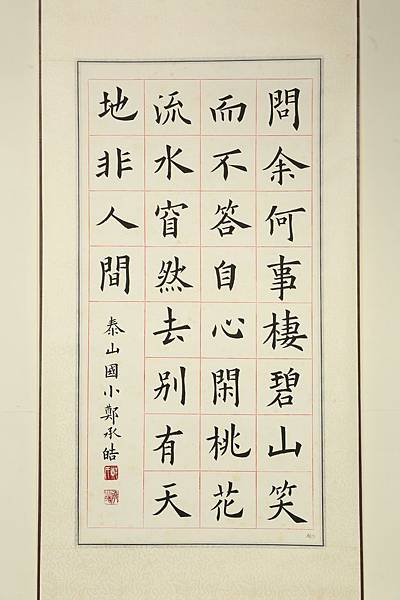 問余何事棲碧山笑
而不答自心閑桃花
流水窅然去別有天
地非人間
泰山國小鄭承皓